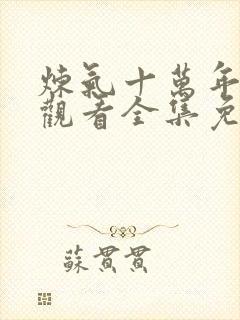 煉氣十萬年
觀看全集免
蘇貫貫